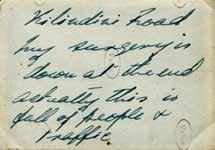 Kilindini Road
my surgery is
down at the end
actually this is
full of people &
traffic.